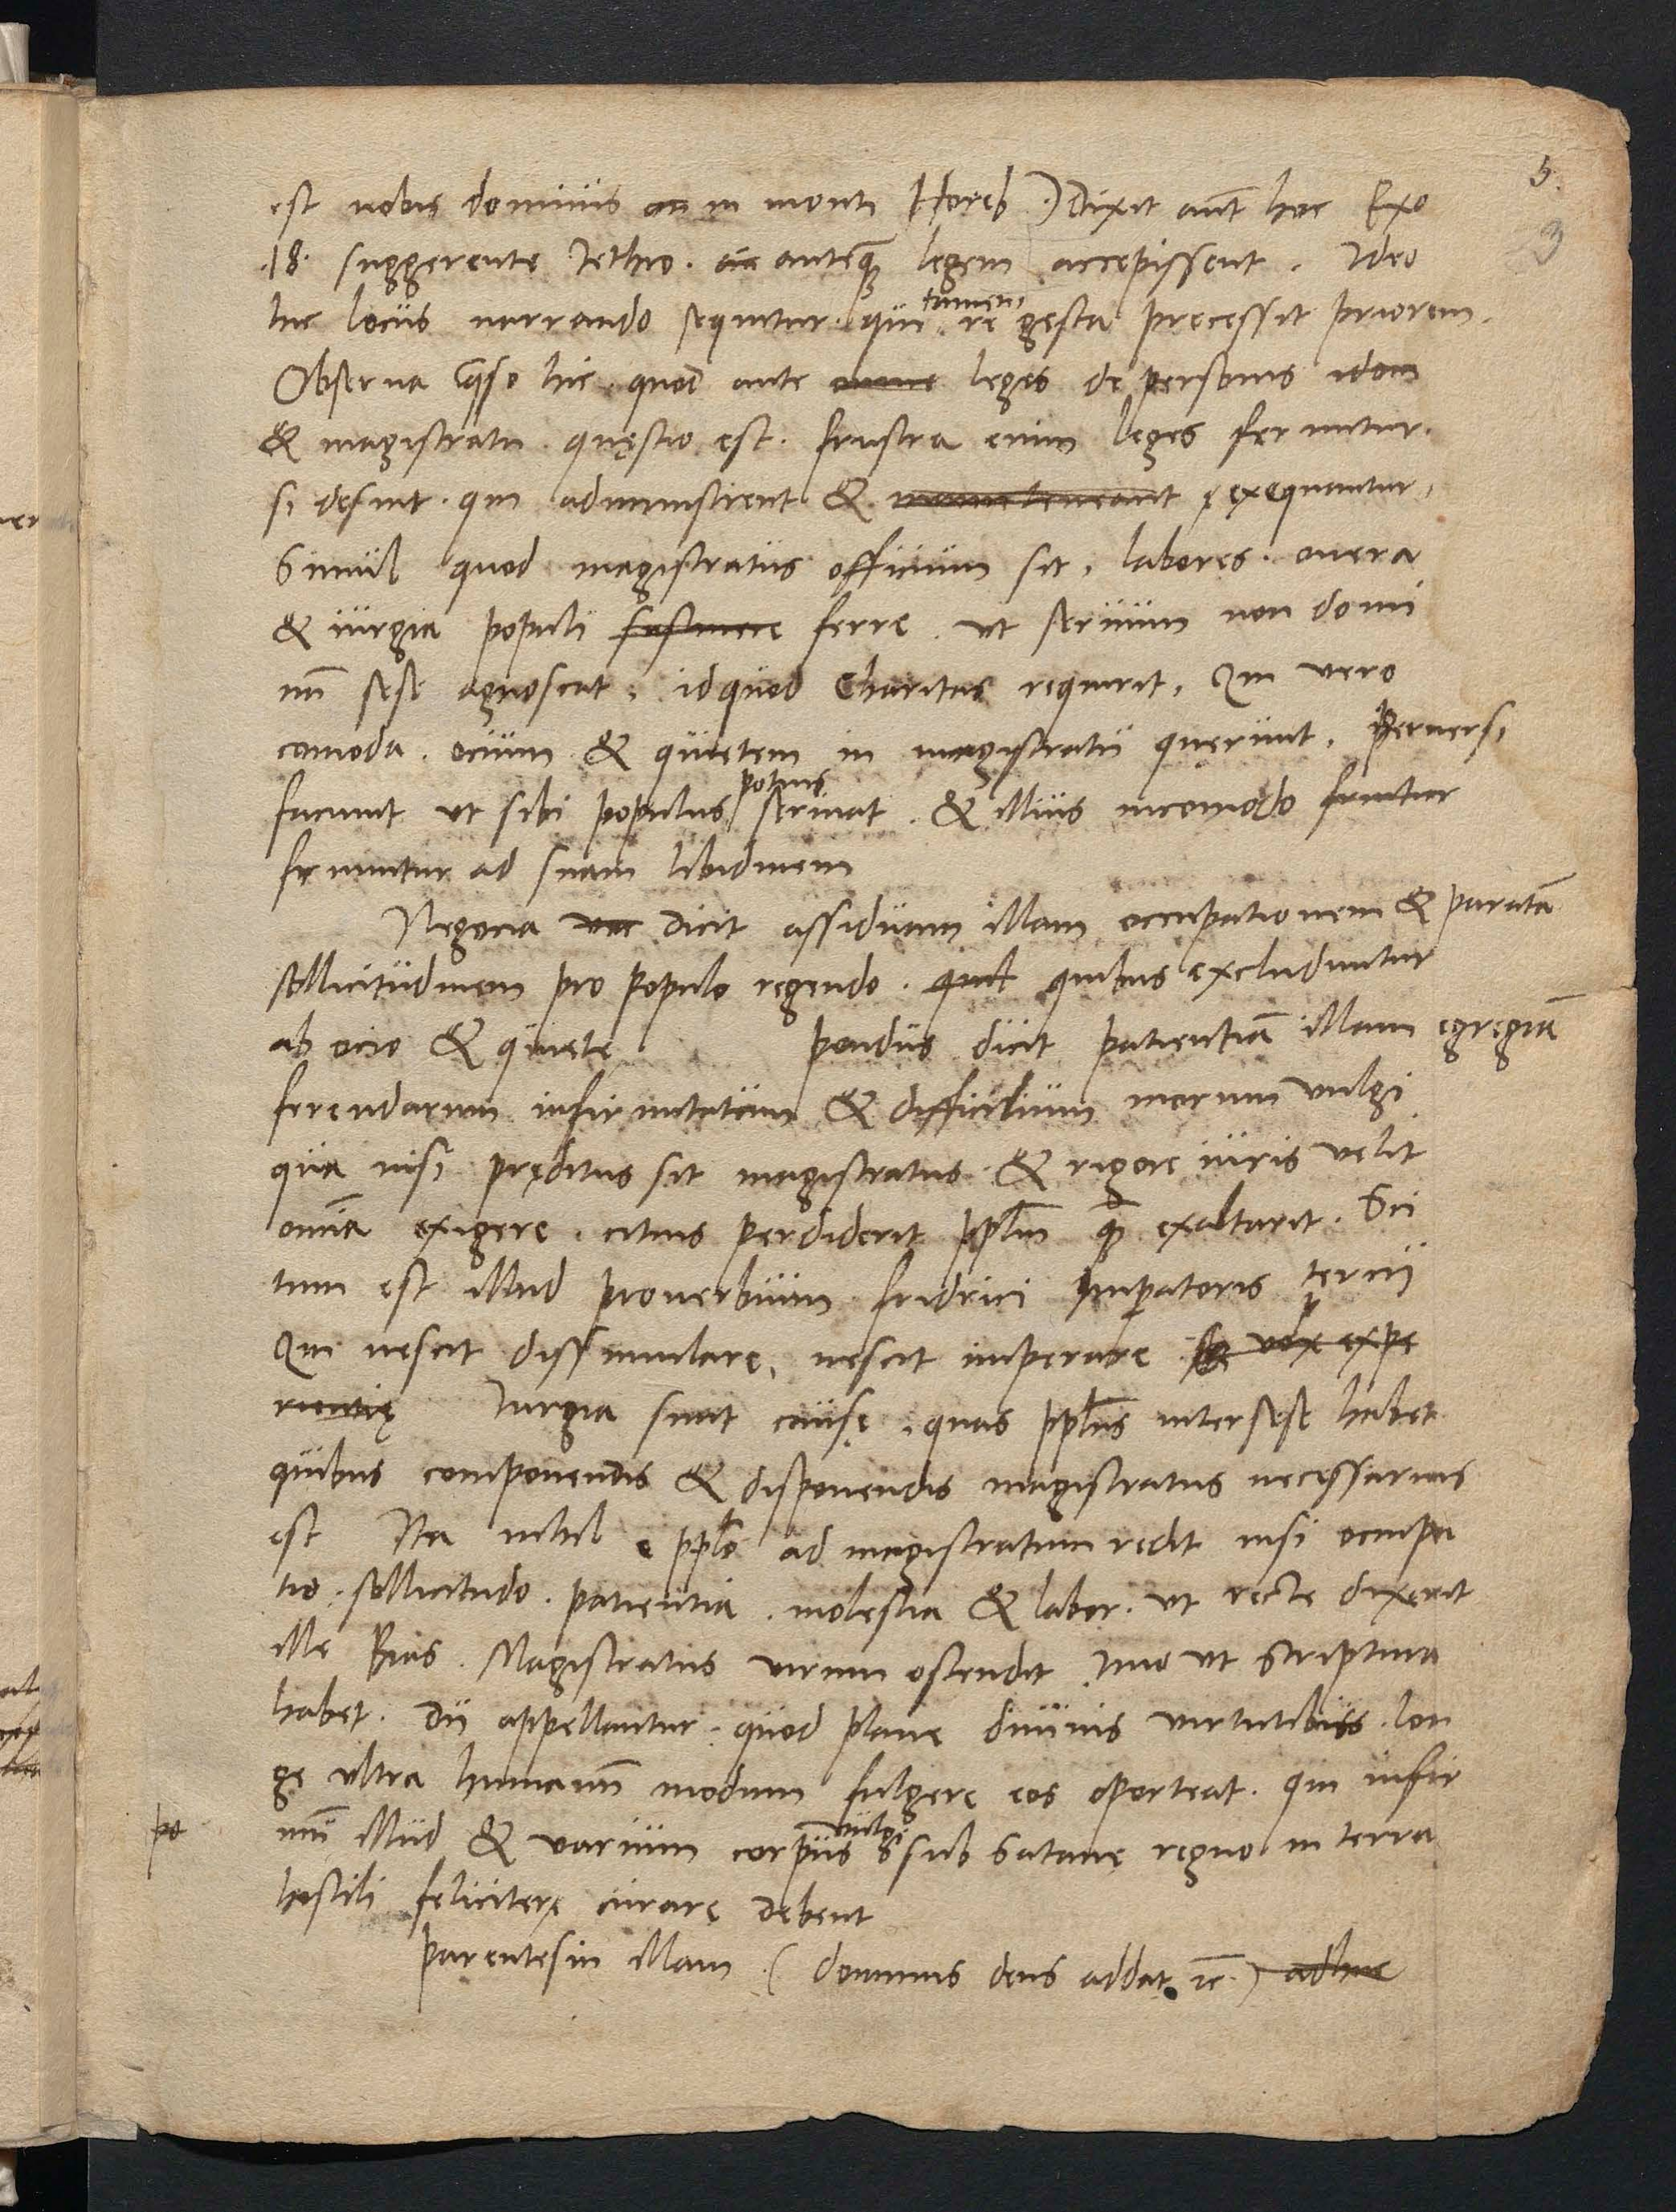 5.
9
est nobis dominus an in monte Horeb.) Dixit aut hoc Exo
.18. suggerente Jethro. an anteq legem accepissent. Ideo
hic locus narrando sequitur. qui tamen re gesta precessit priorem.
Observa qso hic. quod ante omne leges de personis idon
& magistratu. quęstio est. frustra enim leges feruntur.
si desint. qui administrent & manuteneant exequantur.
Simul quod magistratus officium sit, labores. onera
& iurgia populi sustinere ferre. ut servum non domi
nu sese agnoscat. id quod Charitas requirit. Qui vero
comoda. ocium & quietem in magistratu querunt. perversi
faciunt ut sibi populus potius serviat. & illius incomodo fruntur
fruuntur ad suam libidinem
Negocia voc dicit assiduam illam occupationem & paratā
sollicitudinem pro populo regendo. quil quibus excluduntur
ab ocio & quiete. pondus dicit patientiā illam egregiā
ferendarum infirmitatum & difficilium morum vulgi
qua nisi pręditus sit magistratus & rigore iuris velit
omīa exigere. citius perdiderit pplm q exaltarit. Sci
tum est illud proverbium fridrici Imperatoris tercij
Qui nescit dissimulare, nescit imperare vox expe
rientię Iurgia sunt causę. quas pplus inter sese habet
quibus componendis & disponendis magistratus necessarius
est Ita nihil e pplo ad magistratum redit nisi occupa
tio. sollicitudo. patientia. molestia & labor. ut recte dixerit
ille Bias. Magistratus virum ostendit. Imo ut scriptura
habet. Dii appellantur. quod plane divinis virtutibus. lon
ge ultra humanū modum fulgere eos oporteat. qui infir
po mū illud & varium corpus vulgi sub Satanę regno in terra
hostili feliciterę curare debent
parentesin illam. ( dominus deus addat ꝛc.) adhuc